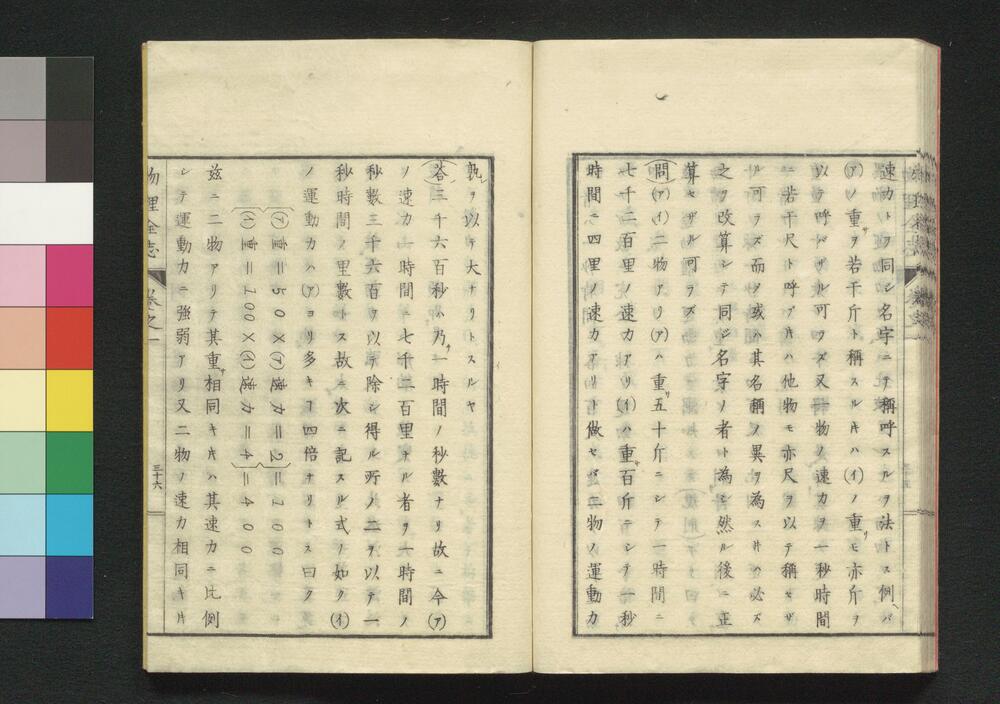 速力トヲ同シ名字ニテ稱呼スルヲ法トス例ヘバ
(ア)ノ重サヲ若干斤ト稱スルキハ(イ)ノ重サモ亦斤ヲ
以テ呼バザル可ラズ又一物ノ速力ヲ一秒時間
ニ若干尺ト呼ブキハ他物モ亦尺ヲ以テ稱セザ
ル可ラズ而ノ或ハ其名稱ノ異ヲ為スキハ必ズ
之ヲ改算シテ同シ名字ノ者ト為シ然ル後ニ正
算セザル可ラズ
(問)(ア)(イ)二物アリ(ア)ハ重サ五十斤ニシテ一時間ニ
七千二百里ノ速力アリ(イ)ハ重サ百斤ニシテ一秒
時間ニ四里ノ速力アリト做セバ二物ノ運動力
孰ヲ以テ大ナリトスルヤ
(答)三千六百秒ハ乃チ一時間ノ秒數ナリ故ニ今(ア)
ノ速力一時間ニ七千二百里ナル者ヲ一時間ノ
秒數三千六百ヲ以テ除シ得ル所ノ二ヲ以テ一
秒時間ノ里數トス故ニ次ニ記スル式ノ如ク(イ)
ノ運動力ハ(ア)ヨリ多キヿ四倍ナリトス曰ク
(ア)重=50×(ア)速力=2=100
(イ)重=100×(イ)速力=4=400
茲ニ二物アリテ其重サ相同キキハ其速力ニ比例
シテ運動力ニ強弱アリ又二物ノ速力相同キキ
物理全志
卷之一
三十六